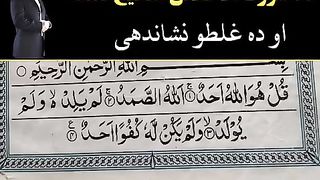 او ده غلطو نشاندهی
بِسْمِ اللهِ الرَّحْمٰنِ الرَّحِيْمِ
قُلْ هُوَ اللهُ اَحَدٌ ۝۱ اَللهُ الصَّمَدُ ۝۲ لَمْ يَلِدْ ۙ وَلَمْ
يُوْلَدْ ۝۳ وَلَمْ يَكُنْ لَّهٗ كُفُوًا اَحَدٌ ۝۴